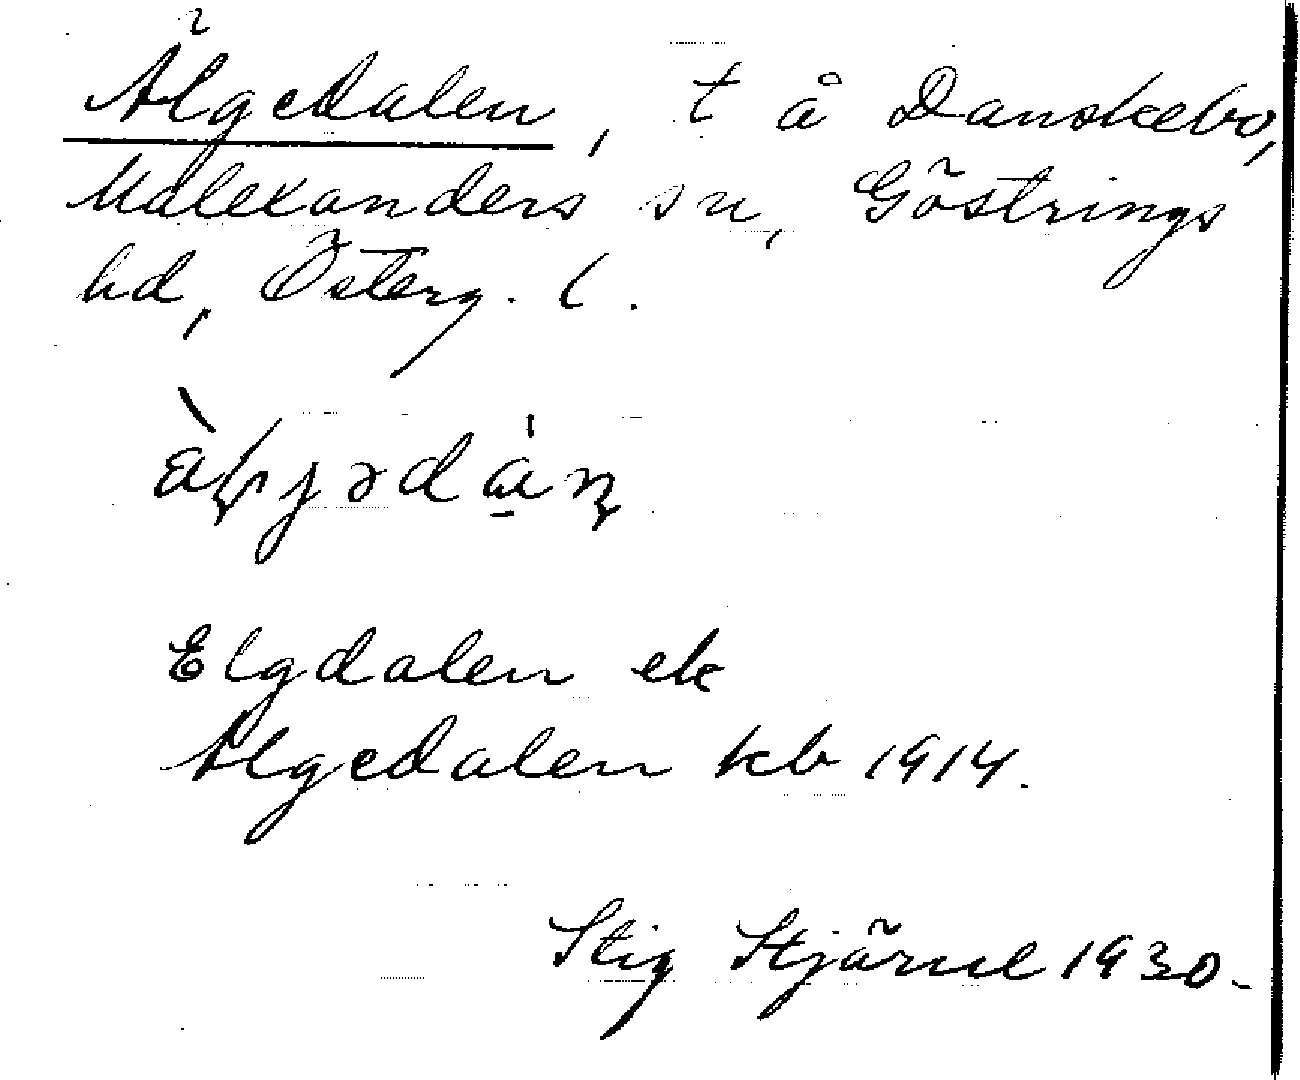 Älgedalen, t å Danskebo,
Malexanders sn, Göstrings
hd, Österg. l.
Elgdalen ek
Älgedalen kb 1914.
Stig Stjärnel 1930.